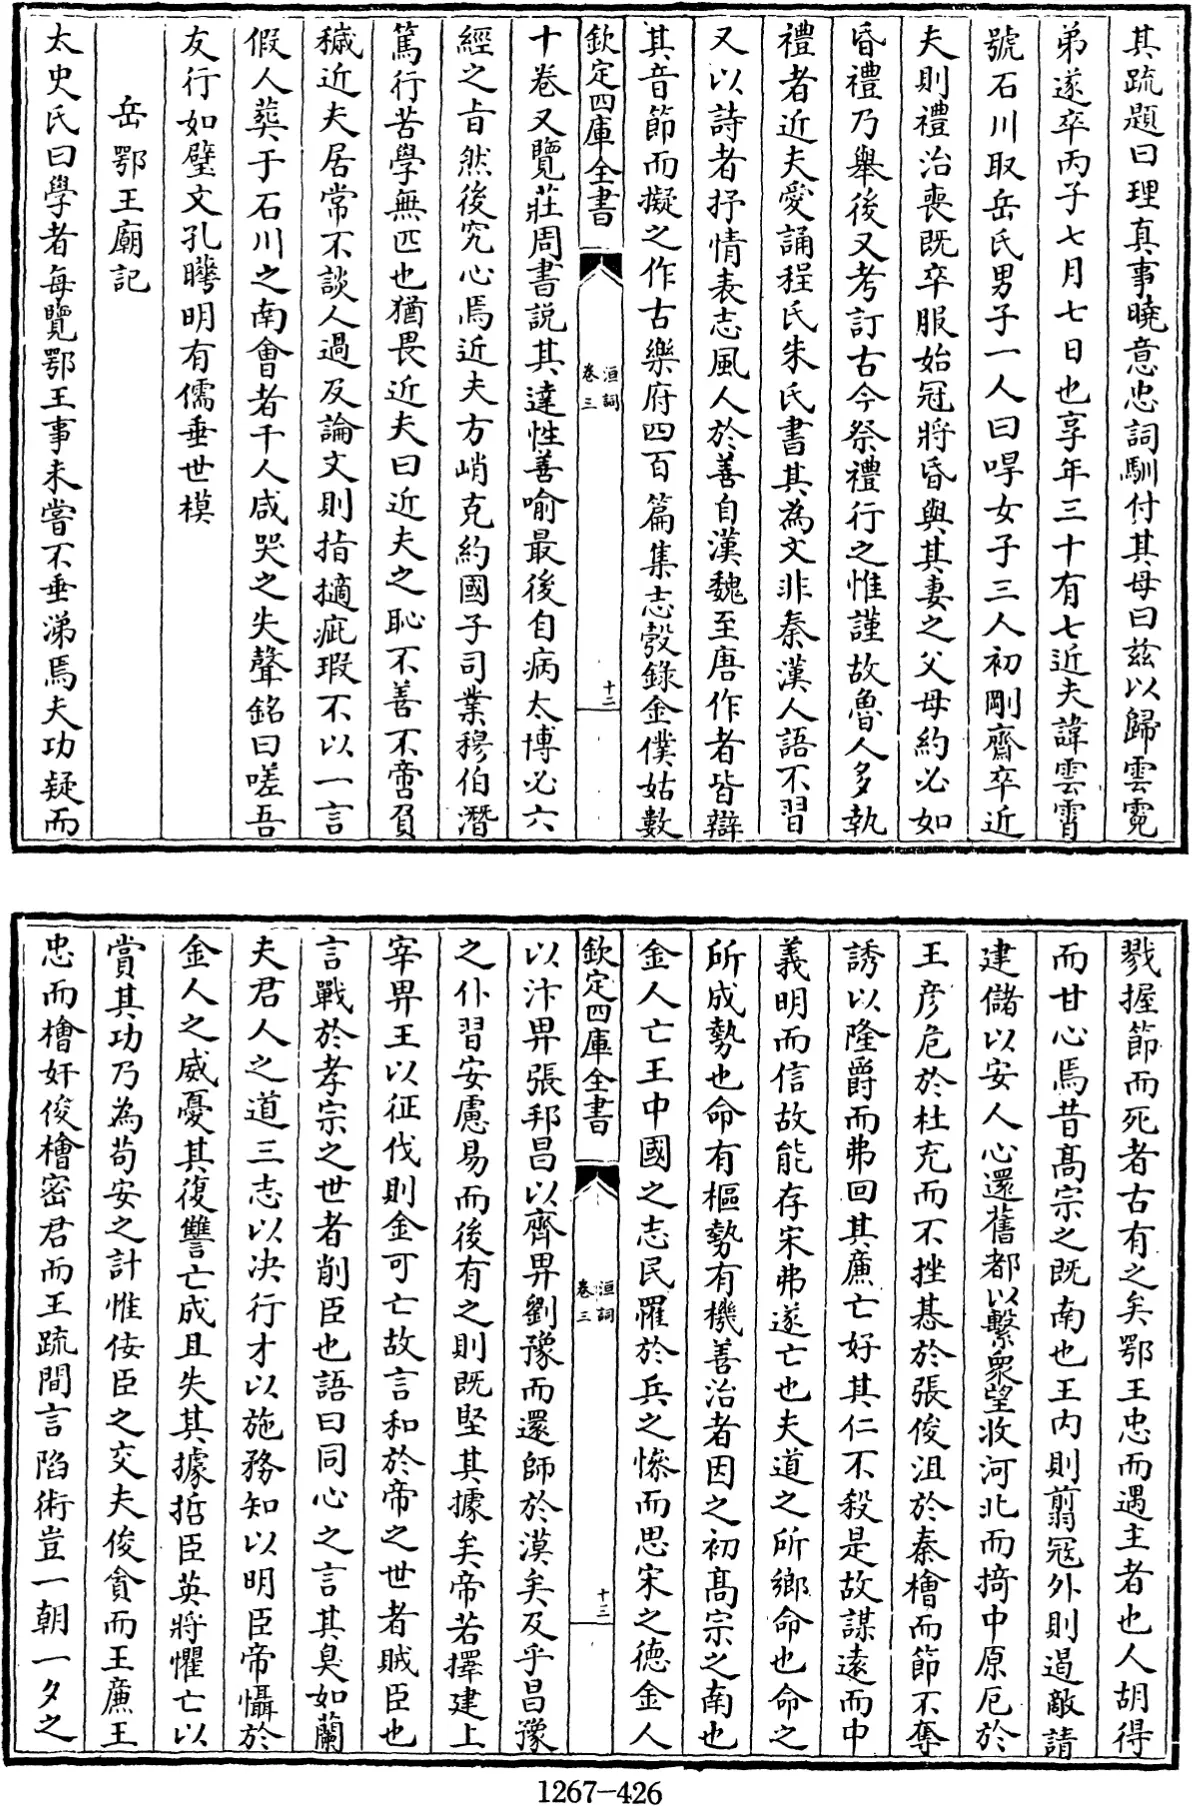 其疏題曰理真事曉意忠詞馴付其母曰兹以歸雲霓
弟遂卒丙子七月七日也享年三十有七近夫諱雲霄
號石川取岳氏男子一人曰㖕女子三人初剛齋卒近
夫則禮治喪既卒服始冠將昏與其妻之父母約必如
昏禮乃舉後又考訂古今祭禮行之惟謹故魯人多執
禮者近夫愛誦程氏朱氏書其為文非秦漢人語不習
又以詩者抒情表志風人於善自漢魏至唐作者皆辯
其音節而擬之作古樂府四百篇集志彀錄金僕姑數
欽定四庫全書
洹詞
卷三
十二
十卷又覽莊周書説其達性善喻最後自病太博必六
經之旨然後究心焉近夫方峭克約國子司業穆伯潛
篤行苦學無匹也猶畏近夫曰近夫之恥不善不啻負
穢近夫居常不談人過及論文則指擿疵瑕不以一言
假人葬于石川之南會者千人咸哭之失聲銘曰嗟吾
友行如璧文孔曄明有儒垂世模
岳鄂王廟記
太史氏曰學者每覽鄂王事未嘗不垂涕焉夫功疑而
戮握節而死者古有之矣鄂王忠而遇主者也人胡得
而甘心焉昔髙宗之既南也王内則翦冦外則遏敵請
建儲以安人心還舊都以繫衆望收河北而掎中原厄於
王彦危於杜充而不挫惎於張俊沮於秦檜而節不奪
誘以隆爵而弗回其廉亡好其仁不殺是故謀逺而中
義明而信故能存宋弗遂亡也夫道之所鄉命也命之
所成勢也命有樞勢有機善治者因之初髙宗之南也
金人亡王中國之志民罹於兵之慘而思宋之德金人
欽定四庫全書
洹詞
卷三
十三
以汴畀張邦昌以齊畀劉豫而還師於漠矣及乎昌豫
之仆習安慮易而後有之則既堅其據矣帝若擇建上
宰畀王以征伐則金可亡故言和於帝之世者賊臣也
言戰於孝宗之世者削臣也語曰同心之言其臭如蘭
夫君人之道三志以决行才以施務知以明臣帝懾於
金人之威憂其復讐亡成且失其據哲臣英將懼亡以
賞其功乃為苟安之計惟佞臣之交夫俊貪而王廉王
忠而檜奸俊檜密君而王疏間言陷術豈一朝一夕之
1267-426